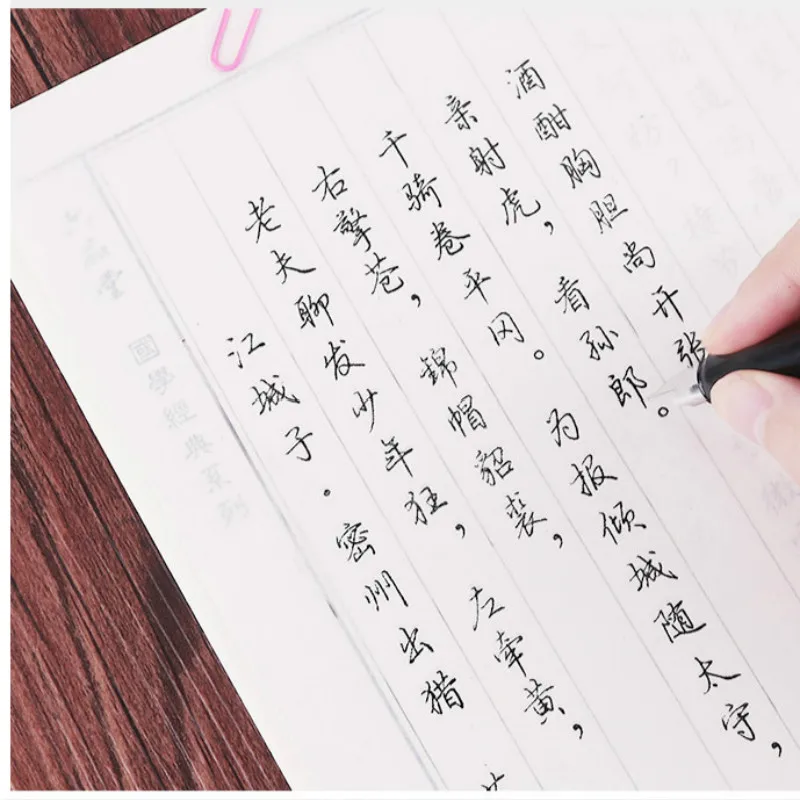 六品堂 國學經典系列
江城子。密州出猎
老夫聊发少年狂，左牵黄，
右擎苍，锦帽貂裘，
千骑卷平冈。为报倾城随太守，
亲射虎，看孙郎。
酒酣胸胆尚开张